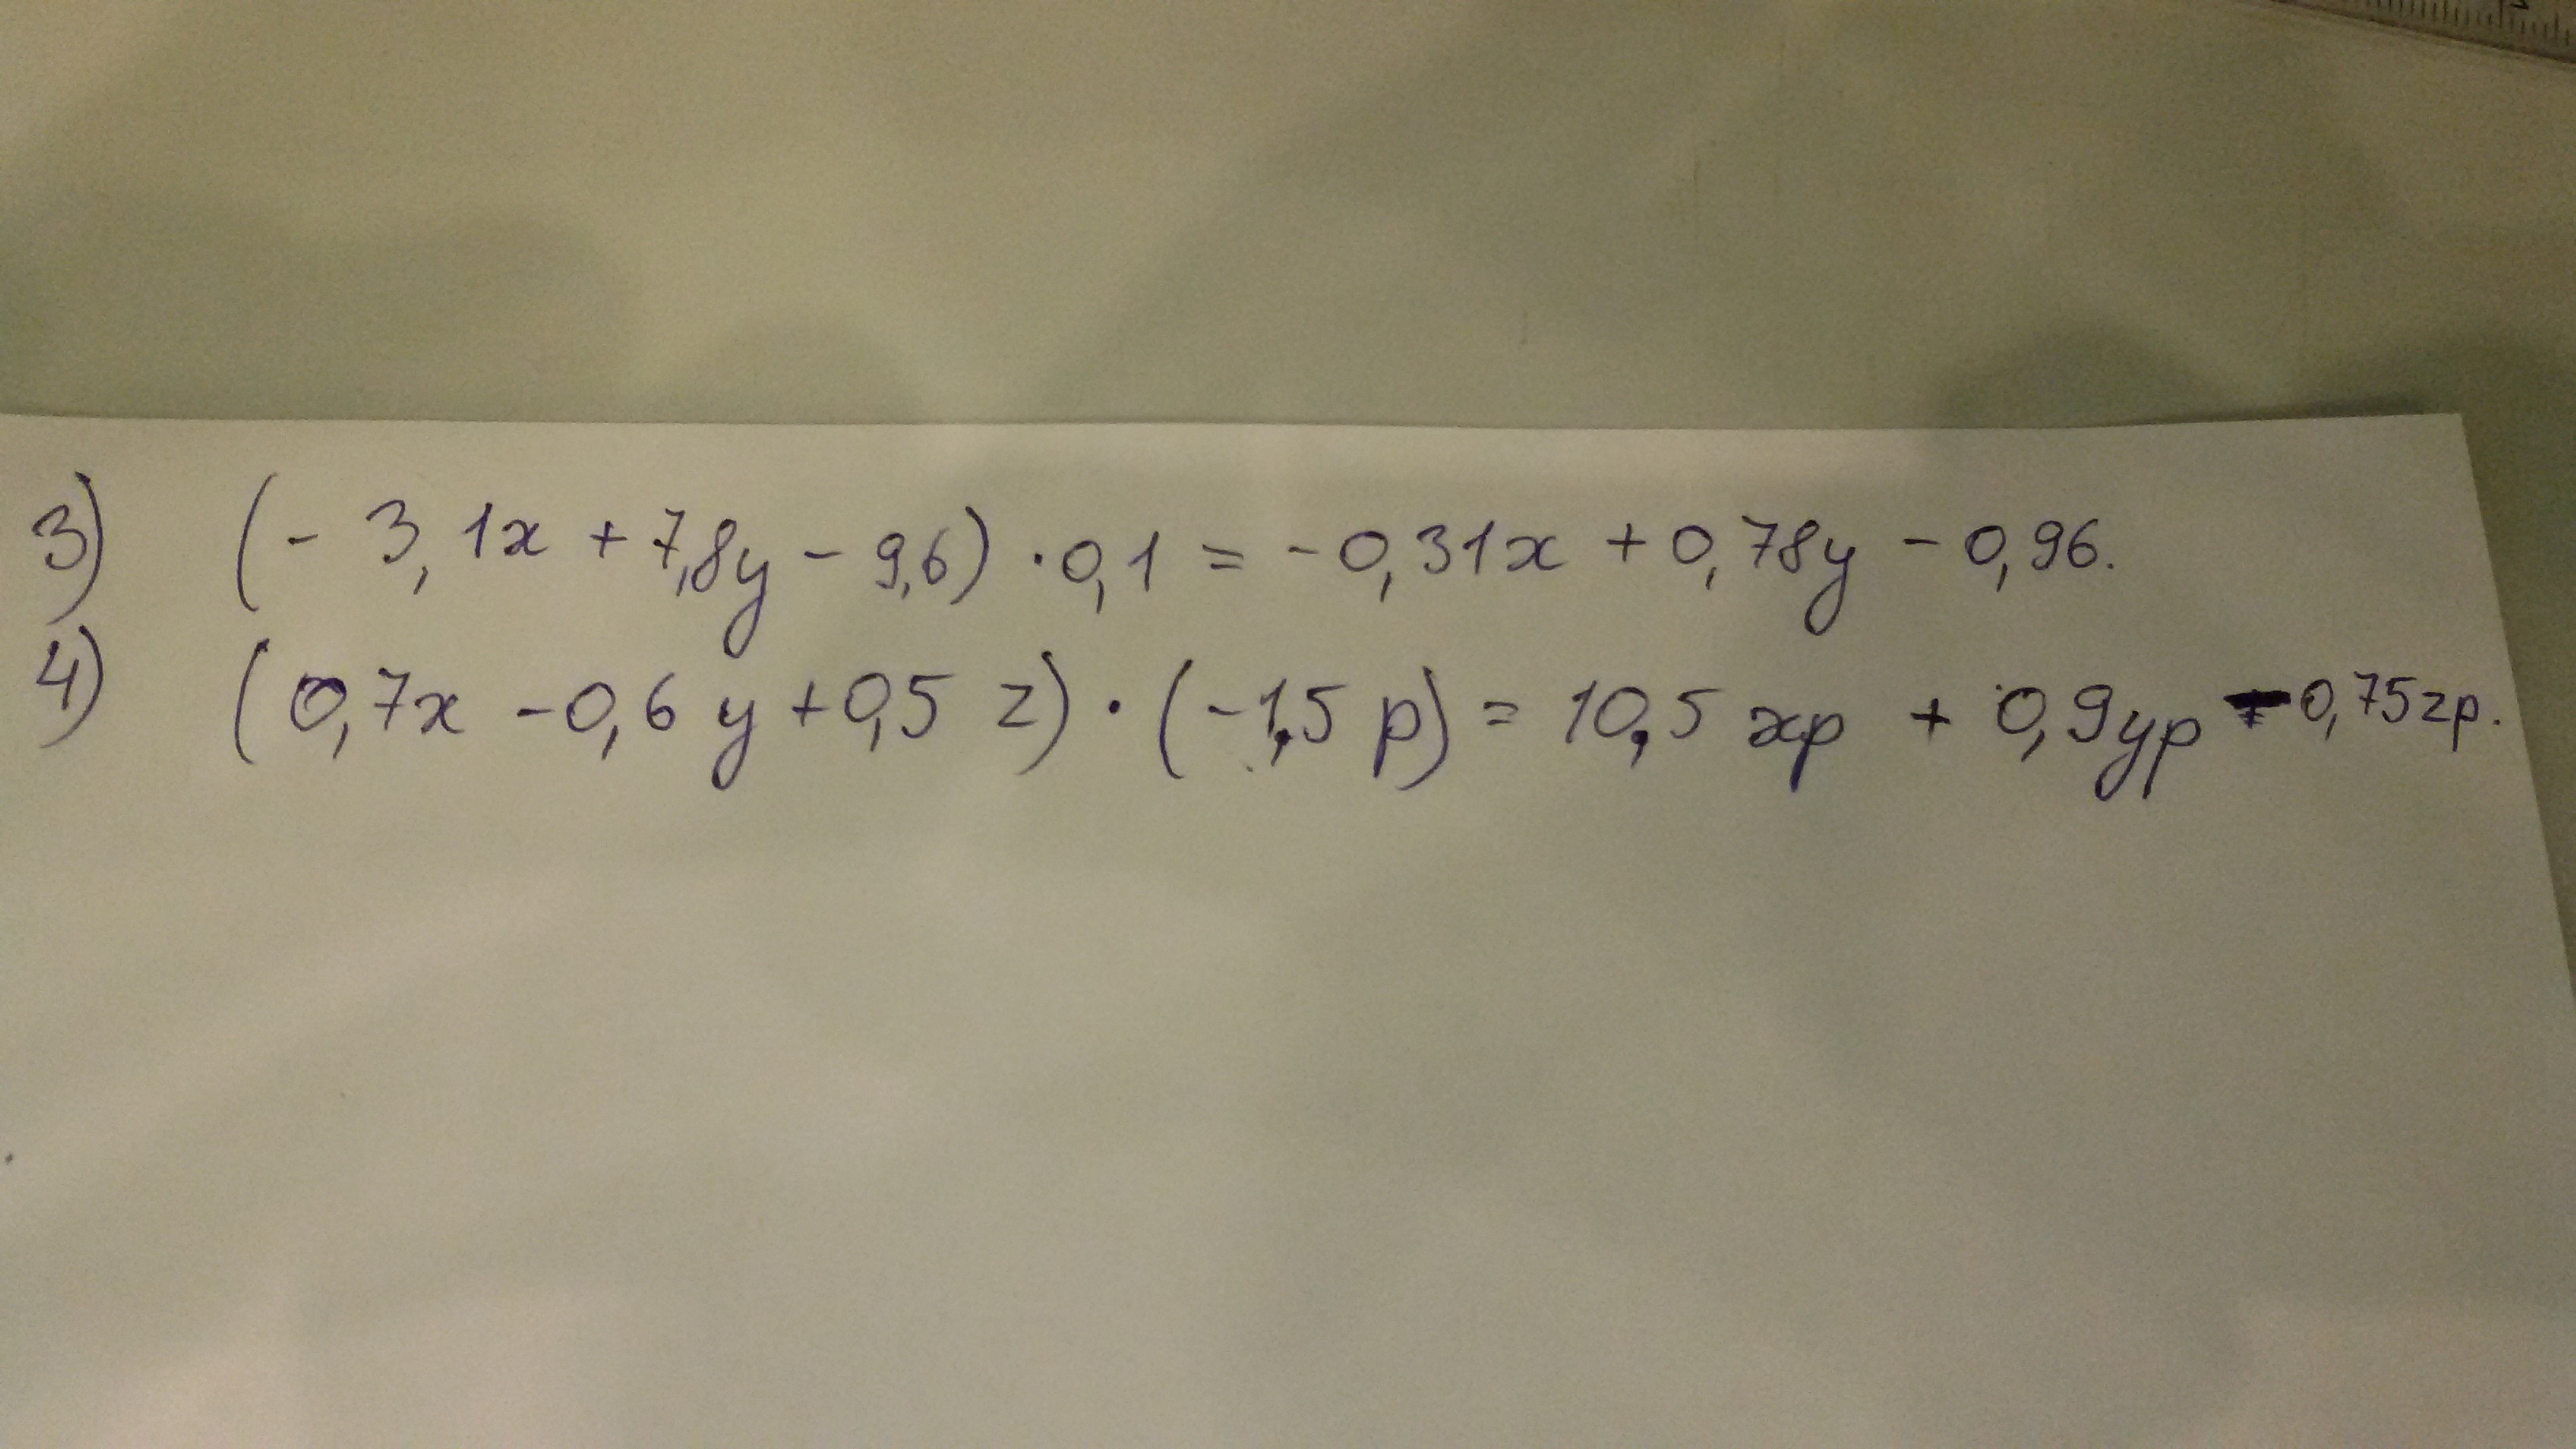 3) (- 3,1x + 7,8y - 9,6) · 0,1 = -0,31x + 0,78y - 0,96.
4) (0,7x - 0,6y + 0,5 z) · (-1,5 p) = 10,5 xp + 0,9yp - 0,75zp.